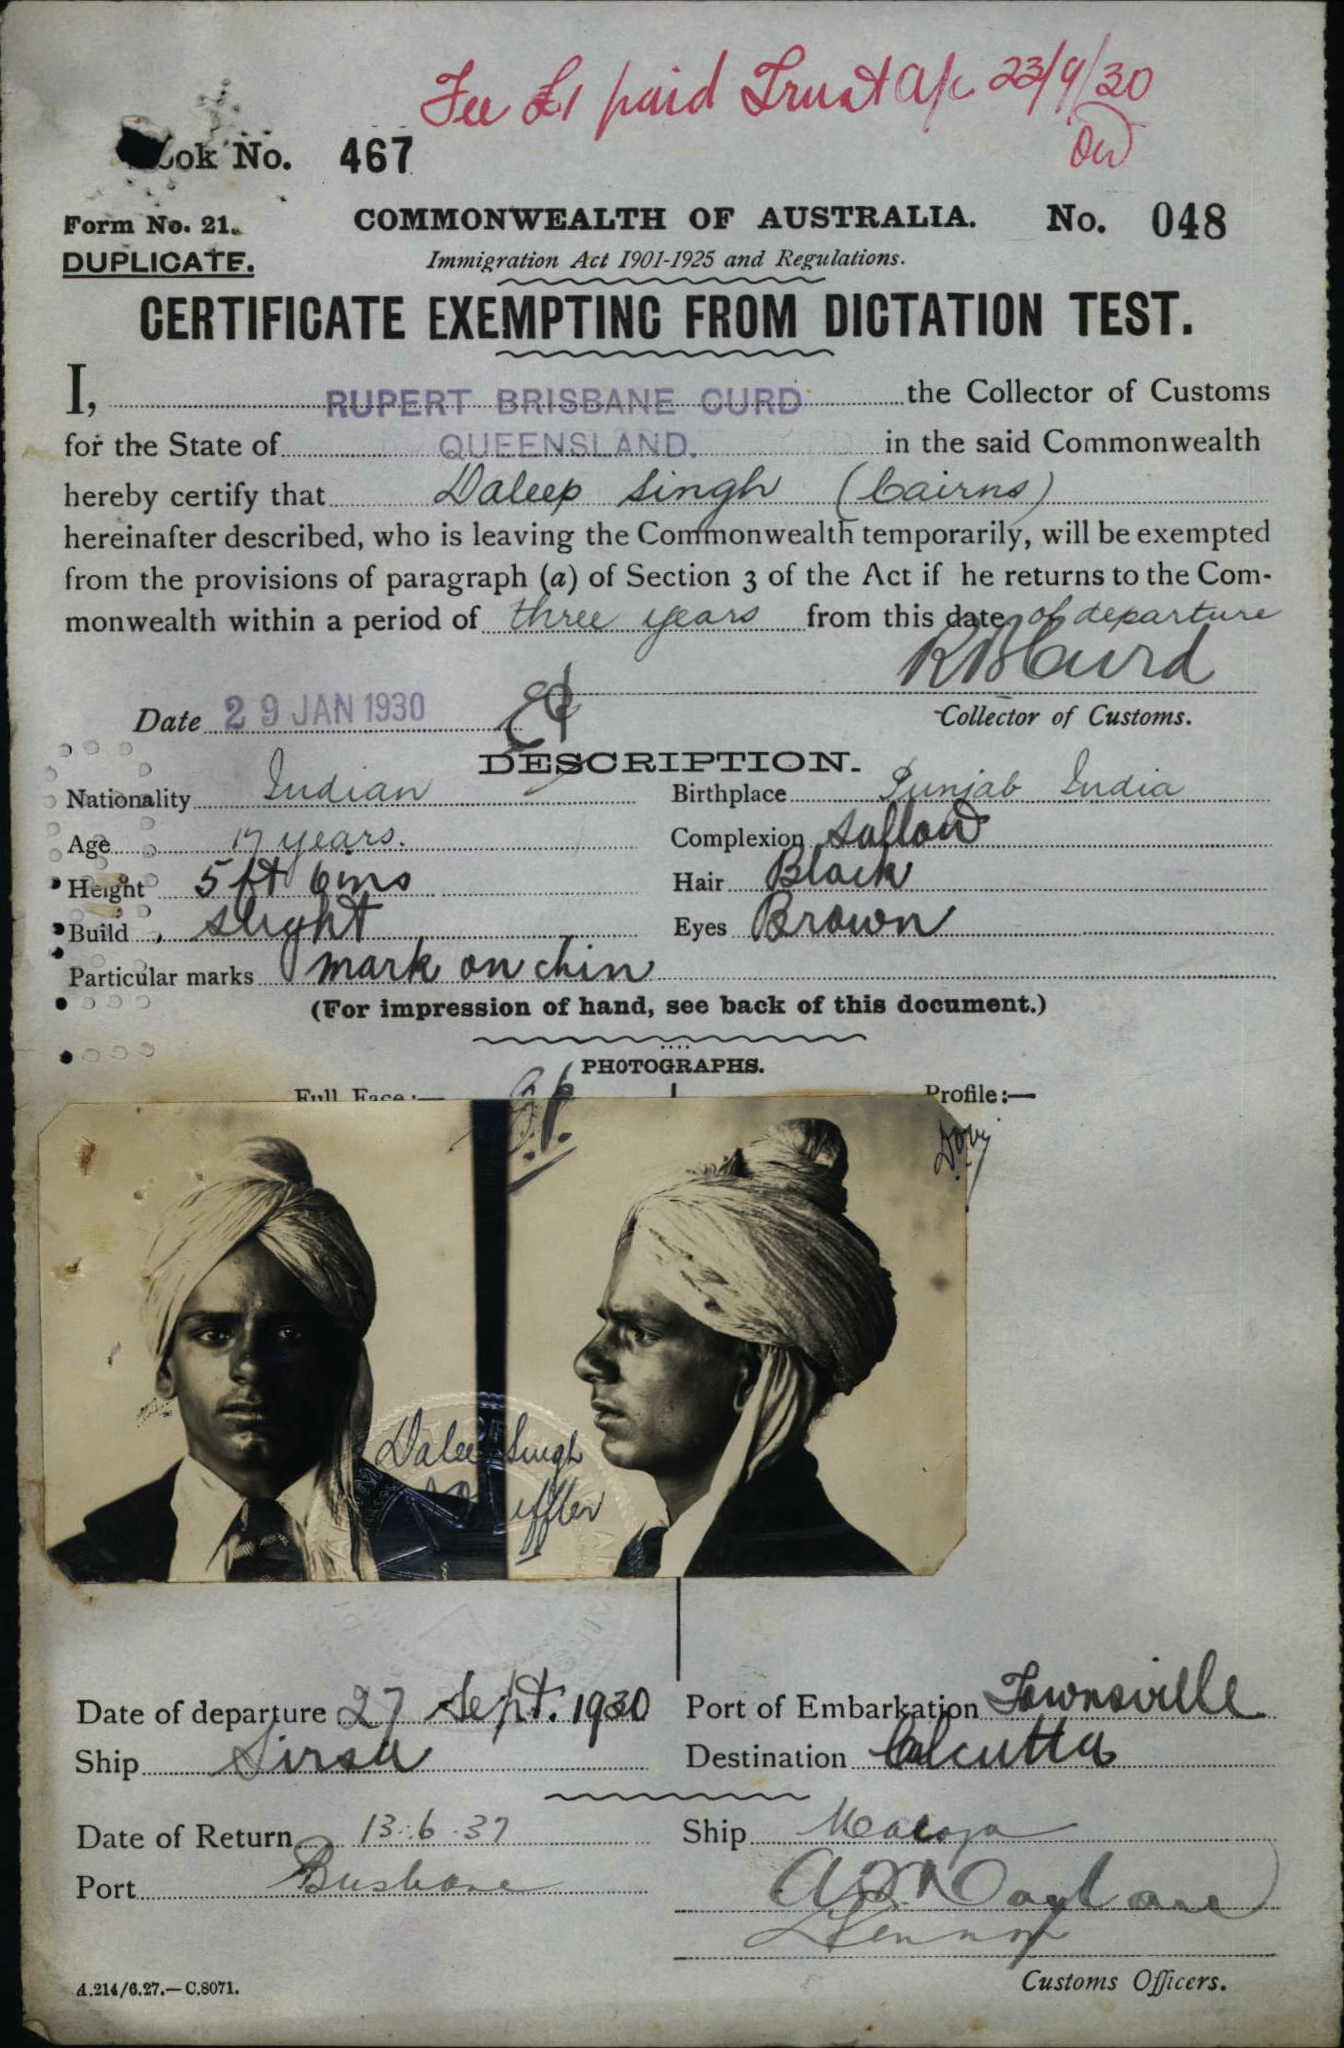 Fee £1 paid Trust a/c 23/9/30
ook No. 467
Form No. 21.
COMMONWEALTH OF AUSTRALIA. No. 048
DUPLICATE.
Immigration Act 1901-1925 and Regulations.
CERTIFICATE EXEMPTING FROM DICTATION TEST.
I, RUPERT BRISBANE CURD the Collector of Customs
for the State of QUEENSLAND. in the said Commonwealth
hereby certify that Daleep Singh (Cairns)
hereinafter described, who is leaving the Commonwealth temporarily, will be exempted
from the provisions of paragraph (a) of Section 3 of the Act if he returns to the Com-
monwealth within a period of three years from this date of departure
RBCurd
Date 29 JAN 1930
Collector of Customs.
DESCRIPTION.
Nationality Indian Birthplace Punjab India
Age 17 years. Complexion Sallow
Height 5 ft 6 ins Hair Black
Build slight Eyes Brown
Particular marks mark on chin
(For impression of hand, see back of this document.)
PHOTOGRAPHS.
Full Face:— Profile:—
Dalee Singh
Date of departure 27 Sept. 1930 Port of Embarkation Townsville
Ship Sirsa Destination Calcutta
Date of Return 13.6.37 Ship Maloja
Port Brisbane
Customs Officers.
A.214/6.27.—C.8071.